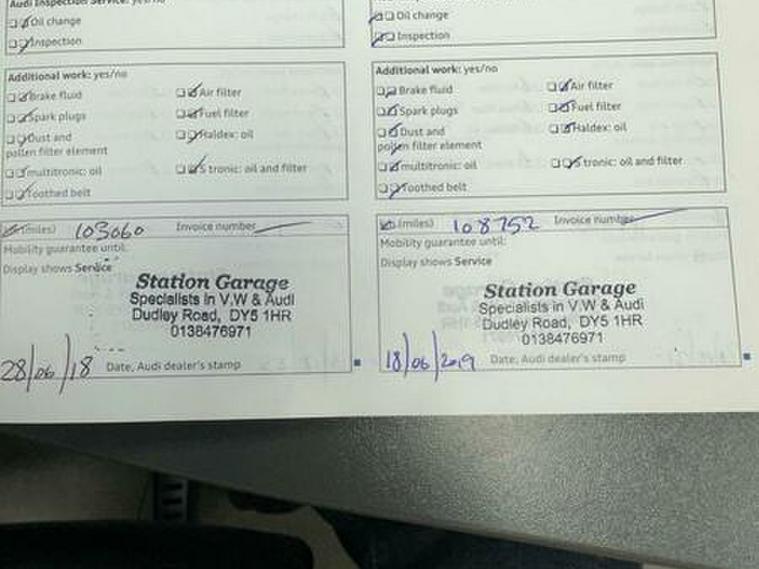 Audi Inspection Service: yes/no
Oil change
Inspection
Additional work: yes/no
Brake fluid
Air filter
Spark plugs
Fuel filter
Dust and
pollen filter element
Haldex: oil
multitronic: oil
S tronic: oil and filter
Toothed belt
(miles) 103060 Invoice number
Mobility guarantee until:
Display shows Service
Station Garage
Specialists in V.W & Audi
Dudley Road, DY5 1HR
0138476971
28/06/18 Date, Audi dealer's stamp
Oil change
Inspection
Additional work: yes/no
Brake fluid
Air filter
Spark plugs
Fuel filter
Dust and
pollen filter element
Haldex: oil
multitronic: oil
S tronic: oil and filter
Toothed belt
(miles) 108752 Invoice number
Mobility guarantee until:
Display shows Service
Station Garage
Specialists in V.W & Audi
Dudley Road, DY5 1HR
0138476971
18/06/2019 Date, Audi dealer's stamp